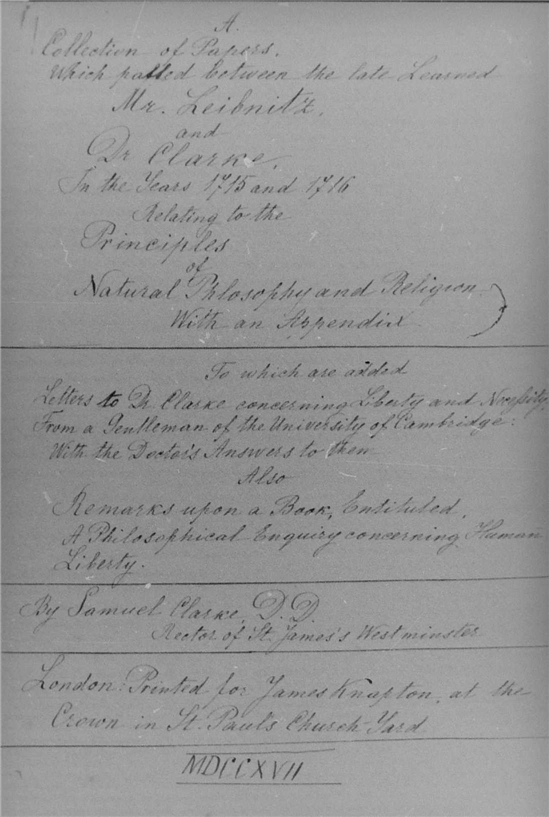 A.
Collection of Papers.
Which passed between the late Learned
Mr. Leibnitz,
and
Dr Clarke,
In the Years 1715 and 1716
Relating to the
Principles
of
Natural Phlosophy and Religion
With an Appendix
To which are added
Letters to Dr. Clarke concerning Liberty and Necessity;
From a Gentleman of the University of Cambridge:
With the Doctor's Answers to them
Also
Remarks upon a Book, Entituled,
A Philosophical Enquiry concerning Human
Liberty.
By Samuel Clarke, D. D.
Rector of St. James's Westminster
London: Printed for James Knapton, at the
Crown in St. Pauls Church-Yard
MDCCXVII